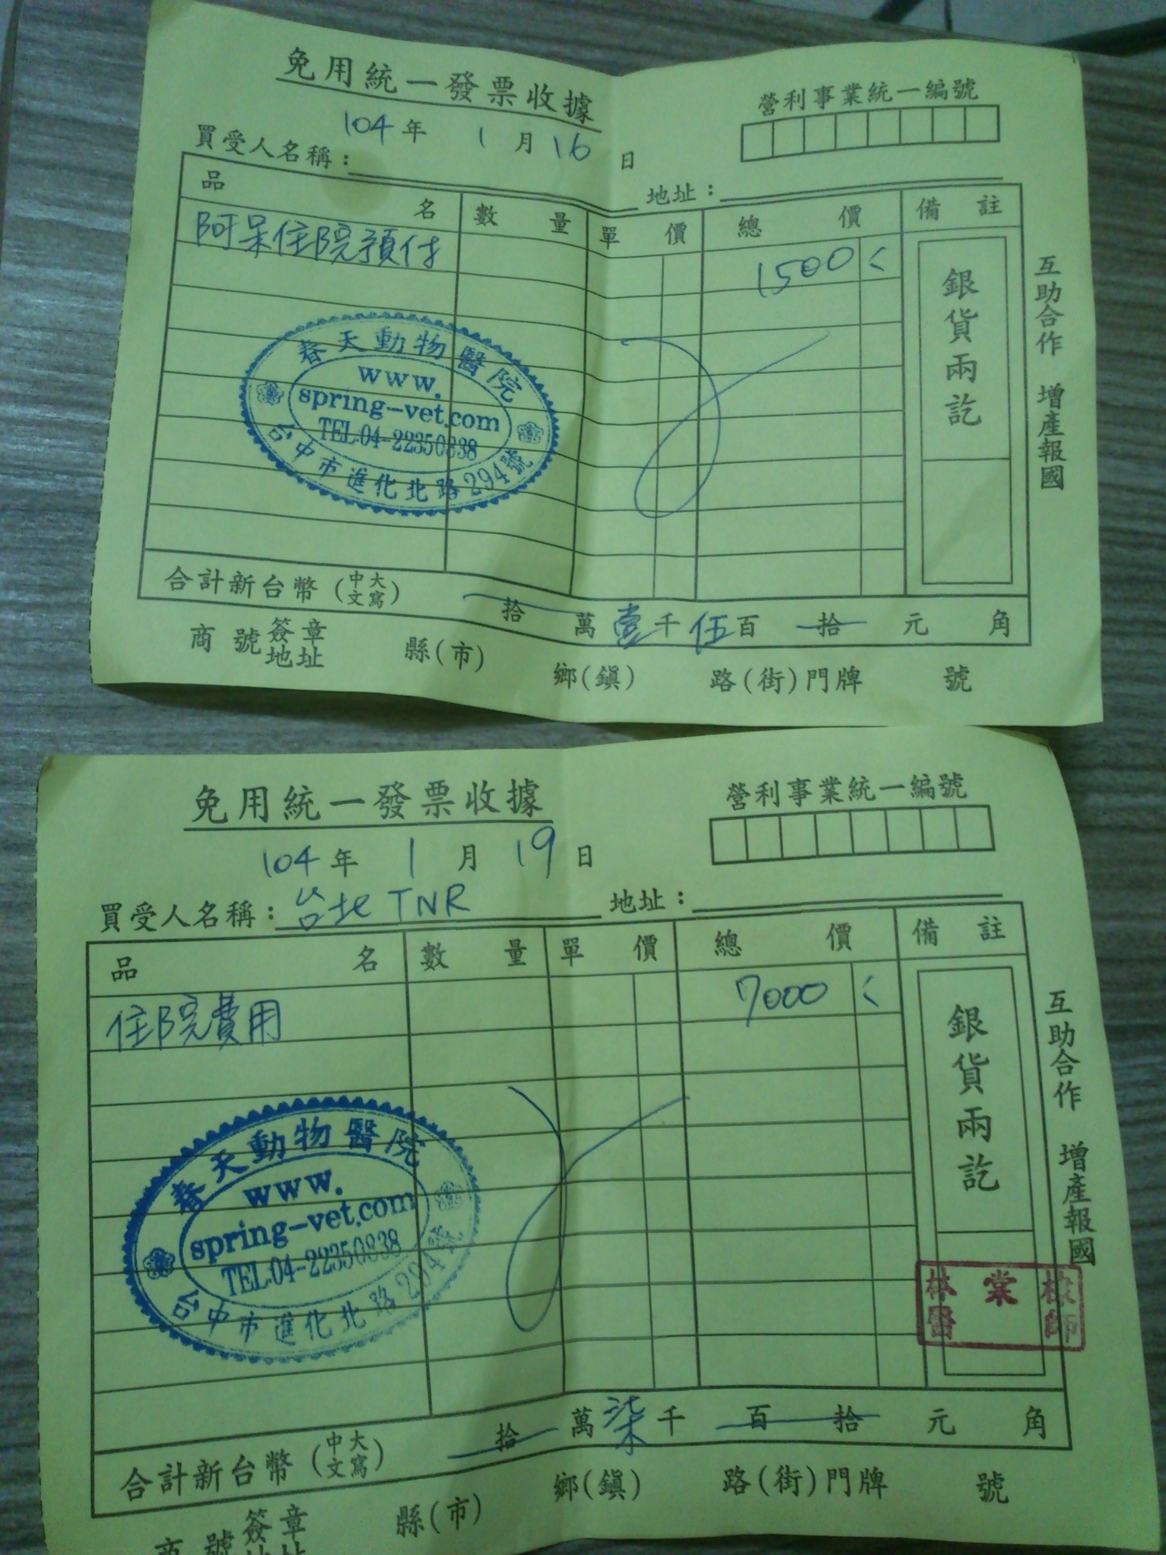 免用統一發票收據
營利事業統一編號
104年 1月16日
買受人名稱：
地址：
品名 數量 單價 總價 備註
阿呆住院預付 1500
銀貨兩訖
互助合作 增產報國
春天動物醫院
www.
spring-vet.com
TEL:04-22350838
台中市進化北路294號
合計新台幣(中文大寫) 拾 萬 壹千 伍百 拾 元 角
商號簽章地址 縣(市) 鄉(鎮) 路(街)門牌 號
免用統一發票收據
營利事業統一編號
104年 1月 19日
買受人名稱：台北TNR 地址：
品名 數量 單價 總價 備註
住院費用 7000
銀貨兩訖
互助合作 增產報國
春天動物醫院
www.
spring-vet.com
TEL:04-22350838
台中市進化北路294號
醫師
合計新台幣(中文大寫) 拾 萬 柒千 百 拾 元 角
商號簽章地址 縣(市) 鄉(鎮) 路(街)門牌 號